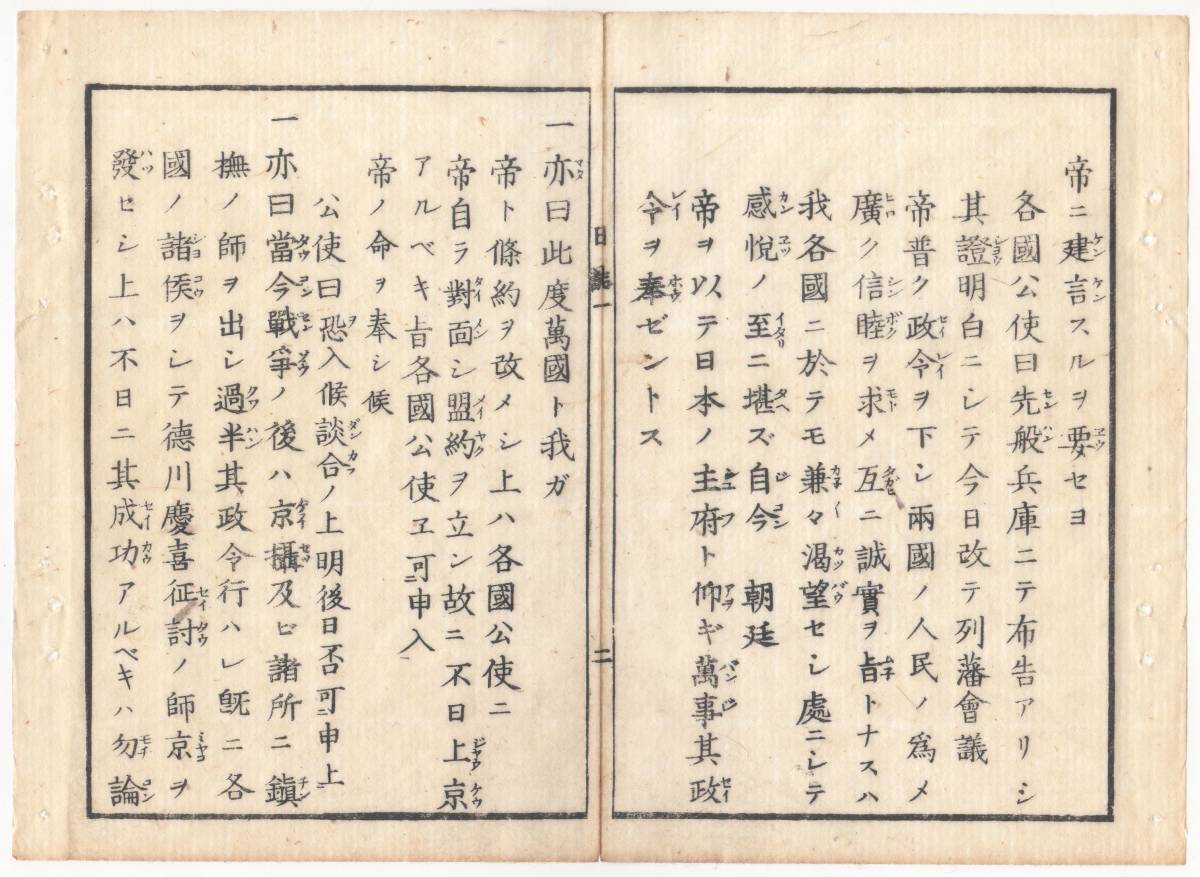 帝ニ建言スルヲ要セヨ
各國公使曰先般兵庫ニテ布告アリシ
其證明白ニシテ今日改テ列藩會議
帝普ク政令ヲ下シ兩國ノ人民ノ爲メ
廣ク信睦ヲ求メ互ニ誠實ヲ旨トナスハ
我各國ニ於テモ兼々渇望セシ處ニシテ
感悦ノ至ニ堪ズ自今 朝廷
帝ヲ以テ日本ノ主府ト仰ギ萬事其政
令ヲ奉ゼントス
日誌一 二
一亦曰此度萬國ト我ガ
帝ト條約ヲ改メシ上ハ各國公使ニ
帝自ラ對面シ盟約ヲ立ン故ニ不日上京
アルベキ旨各國公使ヱ可ニ申入
帝ノ命ヲ奉シ候
公使曰恐入候談合ノ上明後日否可ニ申上
一亦曰當今戰爭ノ後ハ京攝及ビ諸所ニ鎭
撫ノ師ヲ出シ過半其政令行ハレ既ニ各
國ノ諸侯ヲシテ德川慶喜征討ノ師京ヲ
發セシ上ハ不日ニ其成功アルベキハ勿論